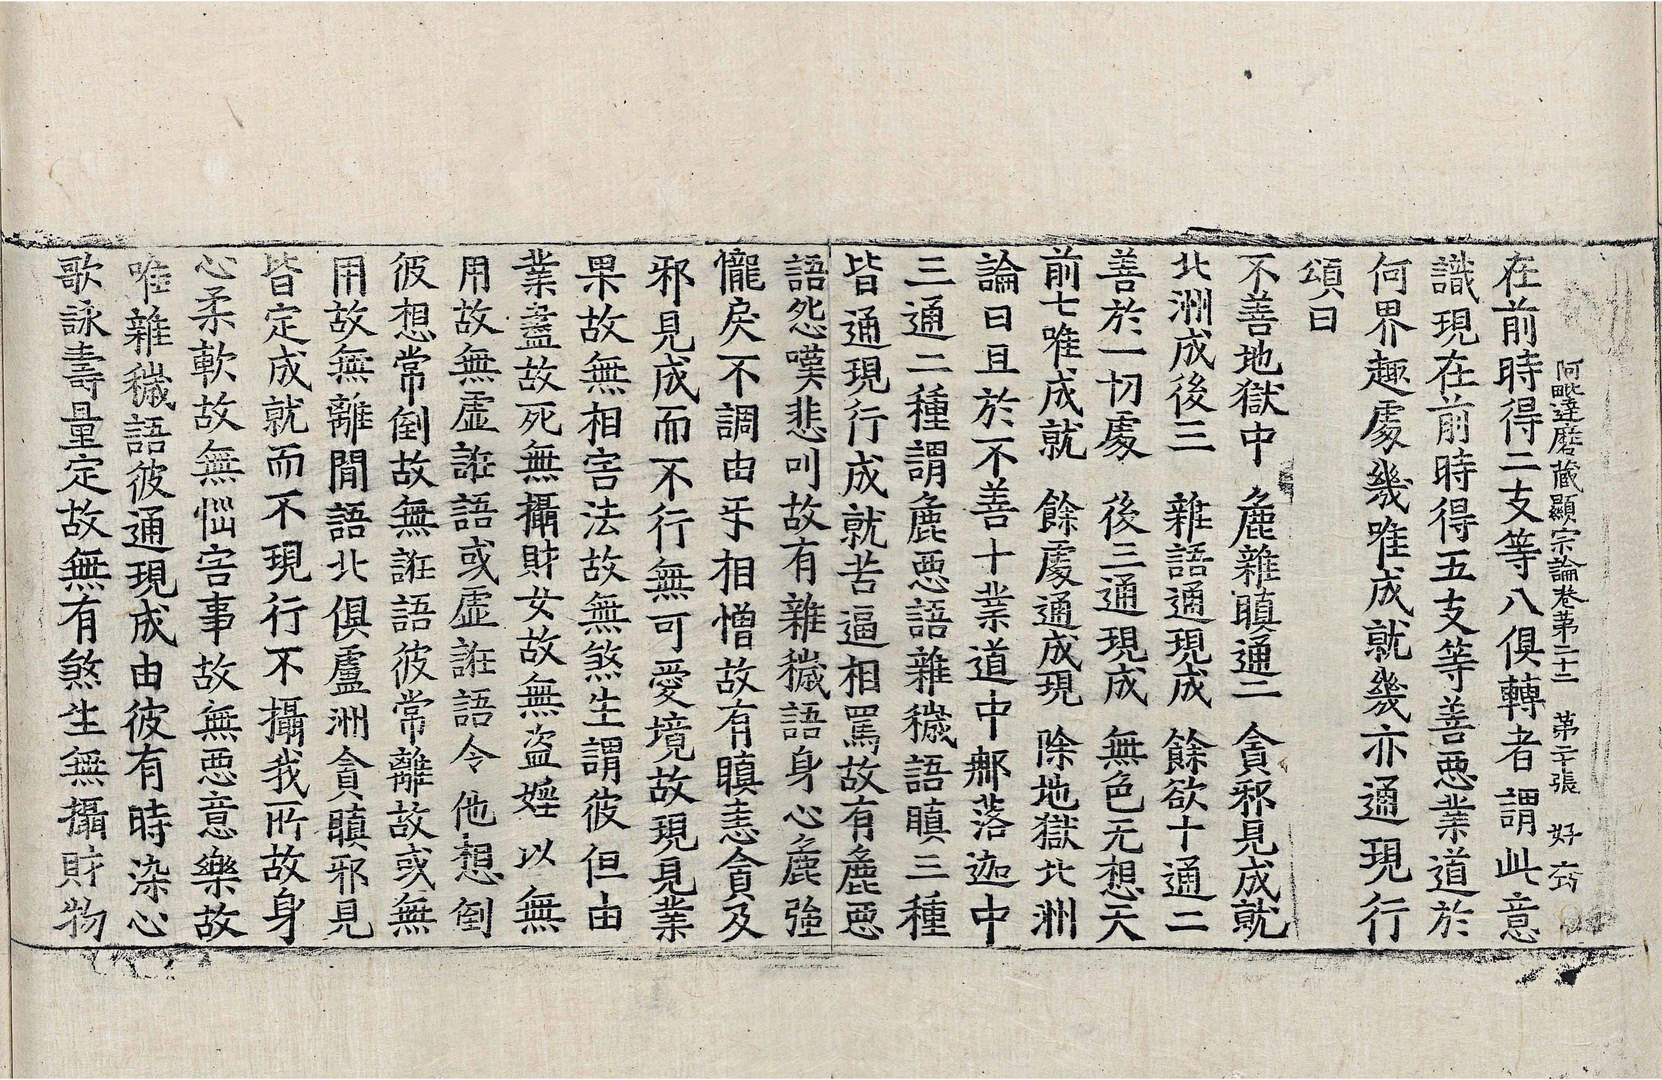 阿毗達磨藏顯宗論卷第二十二　第二十張　好
在前時得二支等八俱轉者謂此意
識現在前時得五支等善惡業道於
何界趣處幾唯成就幾亦通現行
頌曰
不善地獄中　麁雜瞋通二　貪邪見成就
北洲成後三　雜語通現成　餘欲十通二
善於一切處　後三通現成　無色无想天
前七唯成就　餘處通成現　除地獄北洲
論曰且於不善十業道中𨚗落迦中
三通二種謂麁惡語雜穢語瞋三種
皆通現行成就苦逼相罵故有麁惡
語怨嘆悲叫故有雜穢語身心麁強
𢤱戾不調由𤓰相憎故有瞋恚貪及
邪見成而不行無可愛境故現見業
果故無相害法故無煞生謂彼但由
業盡故死無攝財女故無盜婬以無
用故無虛誑語或虛誑語令他想倒
彼想常倒故無誑語彼常離故或無
用故無離間語北俱盧洲貪瞋邪見
皆定成就而不現行不攝我所故身
心柔軟故無惱害事故無惡意樂故
唯雜穢語彼通現成由彼有時染心
歌詠壽量定故無有煞生無攝財物